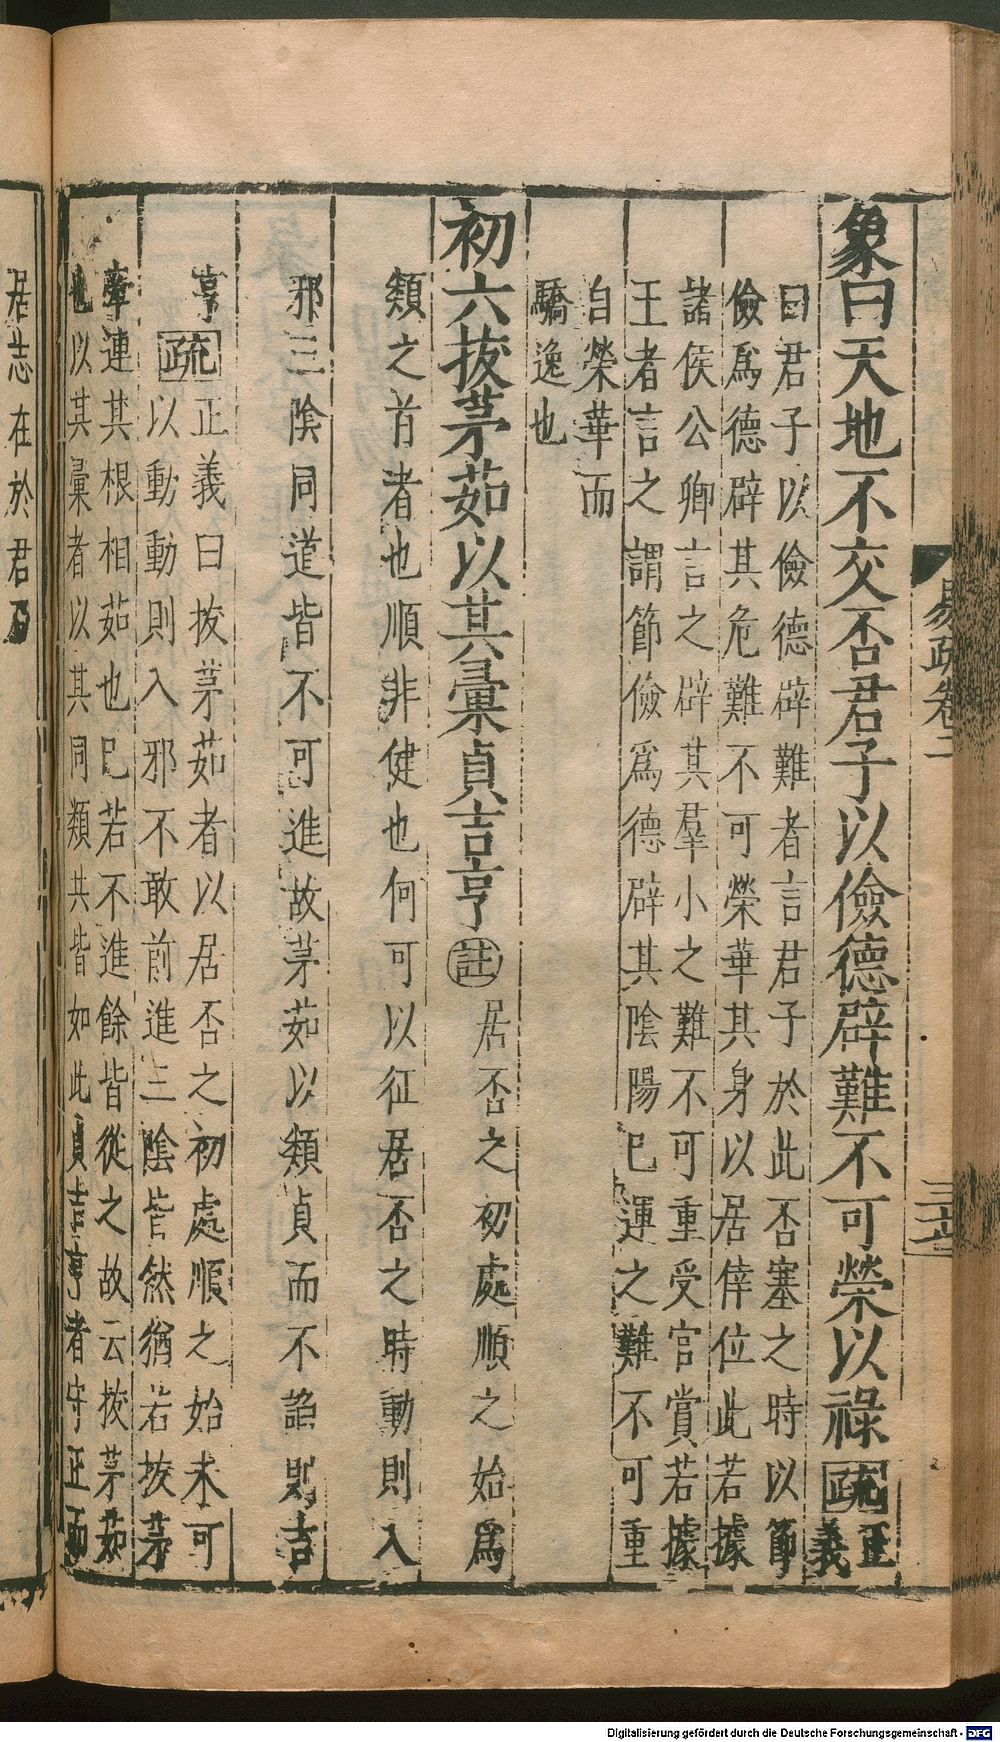 易疏卷二
象曰天地不交否君子以儉德辟難不可榮以祿疏正
義
曰君子以儉德辟難者言君子於此否塞之時以節
儉爲德辟其危難不可榮華其身以居倖位此若據
諸侯公卿言之辟其羣小之難不可重受官賞若據
王者言之謂節儉爲德辟其陰陽已運之難不可重
自榮華而
驕逸也
初六拔茅茹以其彙貞吉亨註居否之初處順之始爲
類之首者也順非健也何可以征居否之時動則入
邪三陰同道皆不可進故茅茹以類貞而不諂則吉
亨疏正義曰拔茅茹者以居否之初處順之始未可
以動動則入邪不敢前進三陰皆然猶若拔茅
牽連其根相茹也巳若不進餘皆從之故云拔茅茹
也以其彙者以其同類共皆如此貞吉亨者守正而
居志在於君乃
Digitalisierung gefördert durch die Deutsche Forschungsgemeinschaft - DFG